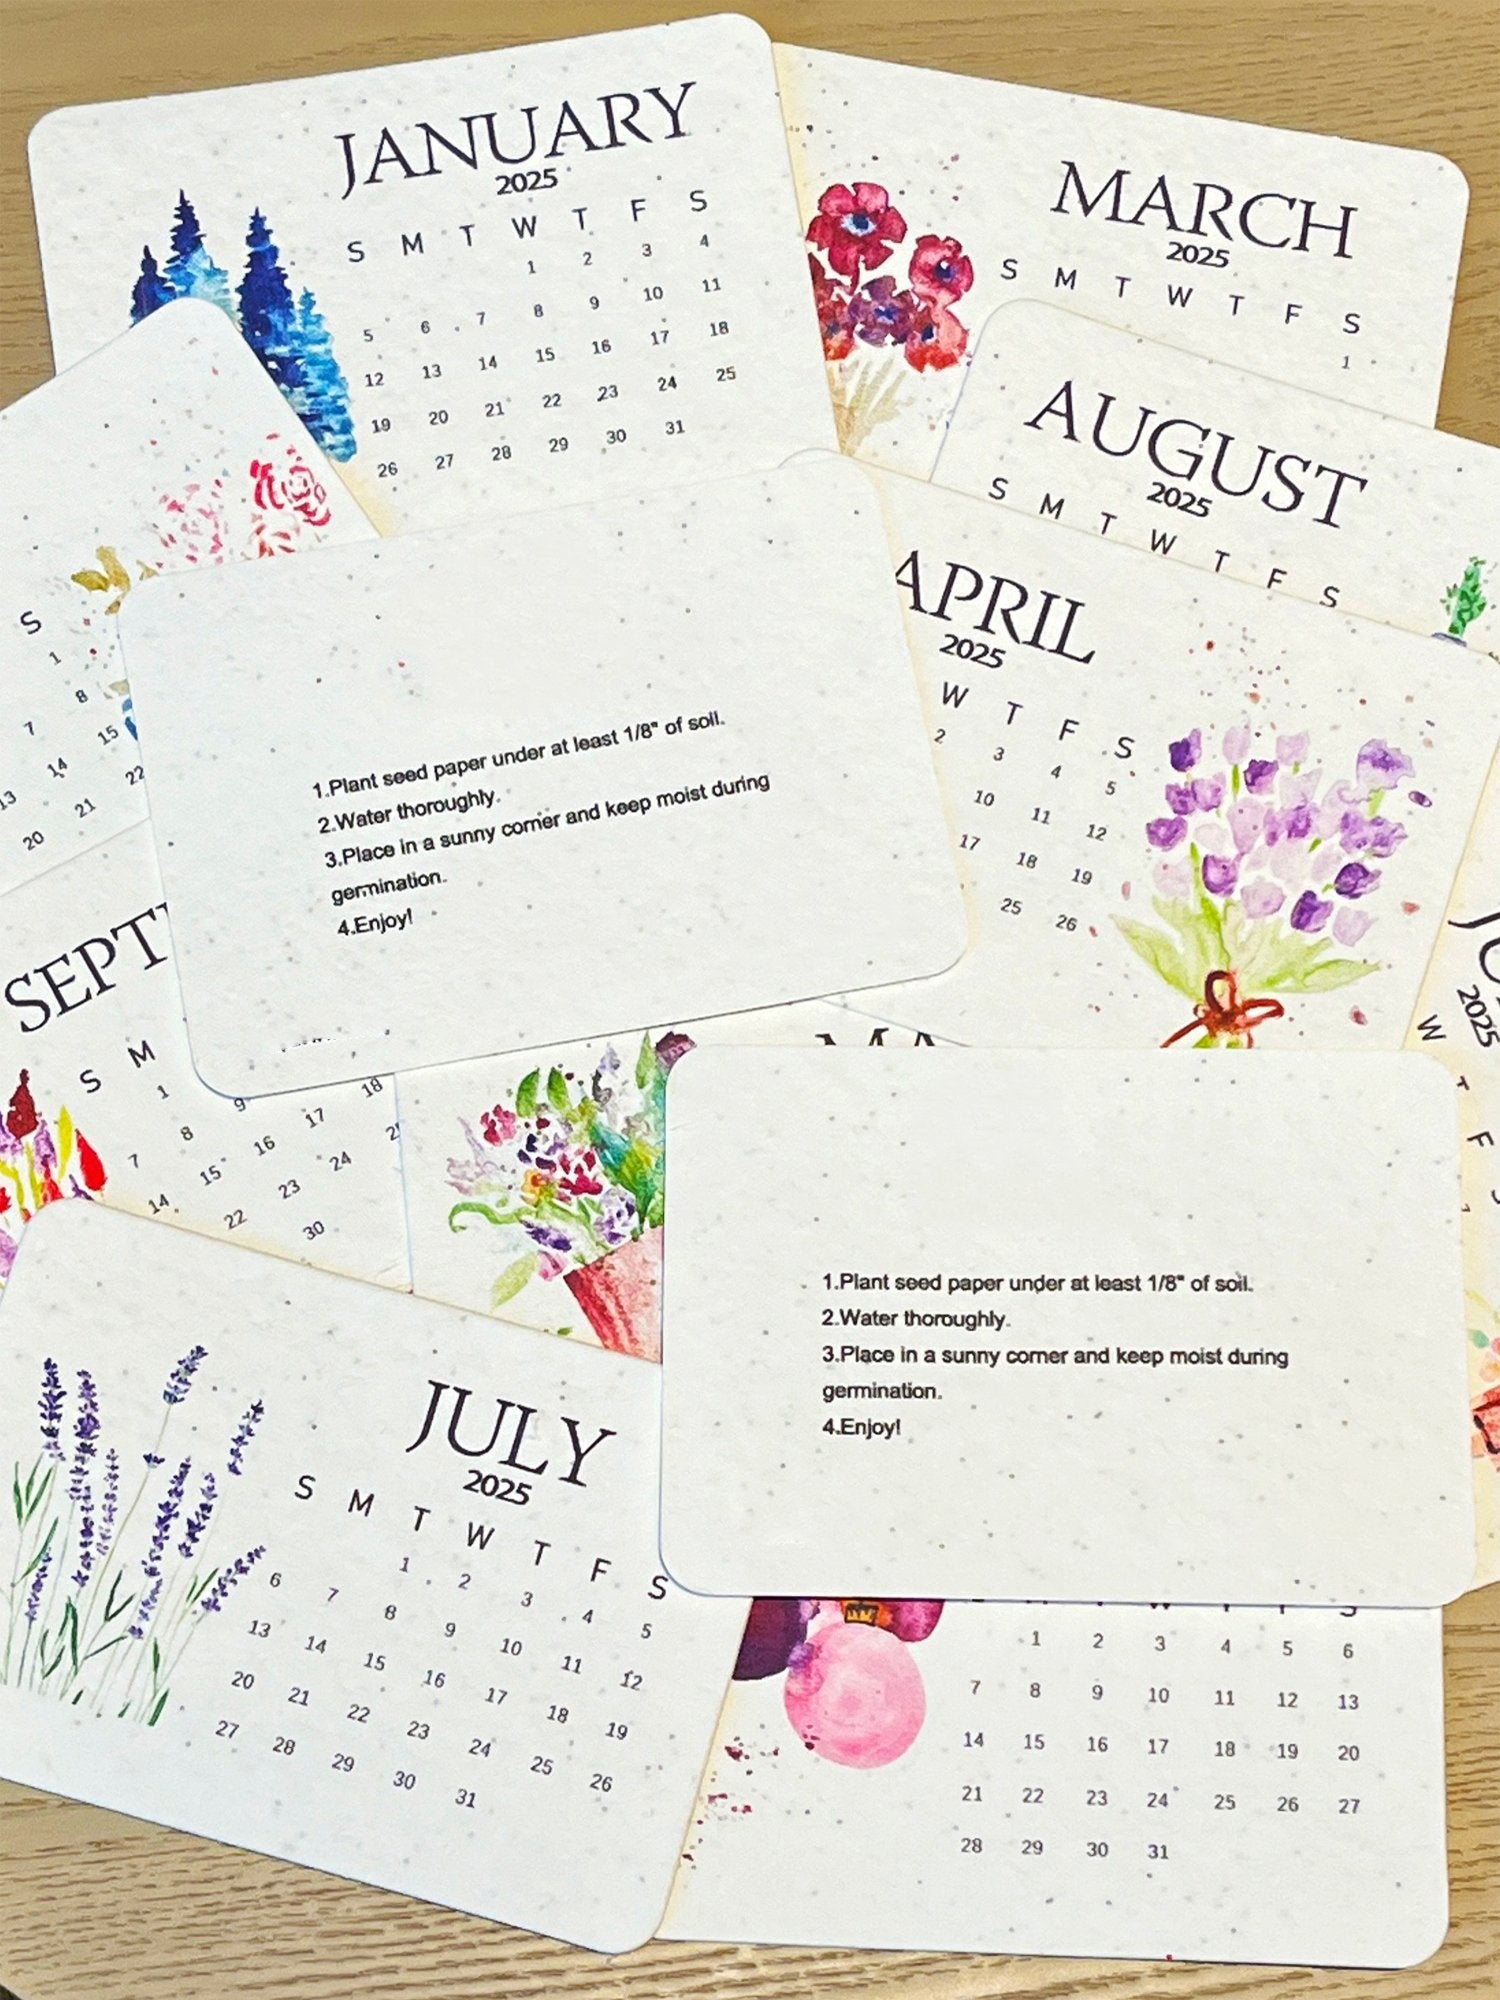 JANUARY
2025
S M T W T F S
1 2 3 4
5 6 7 8 9 10 11
12 13 14 15 16 17 18
19 20 21 22 23 24 25
26 27 28 29 30 31
MARCH
2025
S M T W T F S
1
AUGUST
2025
S M T W T F S
APRIL
2025
W T F S
2 3 4 5
10 11 12
17 18 19
25 26
S
1
7 8
13 14 15
20 21 22
1.Plant seed paper under at least 1/8" of soil.
2.Water thoroughly.
3.Place in a sunny corner and keep moist during
germination.
4.Enjoy!
SEPT
S M
1
7 8 9
14 15 16 17 18
22 23 24
30
2025
W
T
F
1.Plant seed paper under at least 1/8" of soil.
2.Water thoroughly.
3.Place in a sunny corner and keep moist during
germination.
4.Enjoy!
JULY
2025
S M T W T F S
1 2 3 4 5
6 7 8 9 10 11 12
13 14 15 16 17 18 19
20 21 22 23 24 25 26
27 28 29 30 31
1 2 3 4 5 6
7 8 9 10 11 12 13
14 15 16 17 18 19 20
21 22 23 24 25 26 27
28 29 30 31